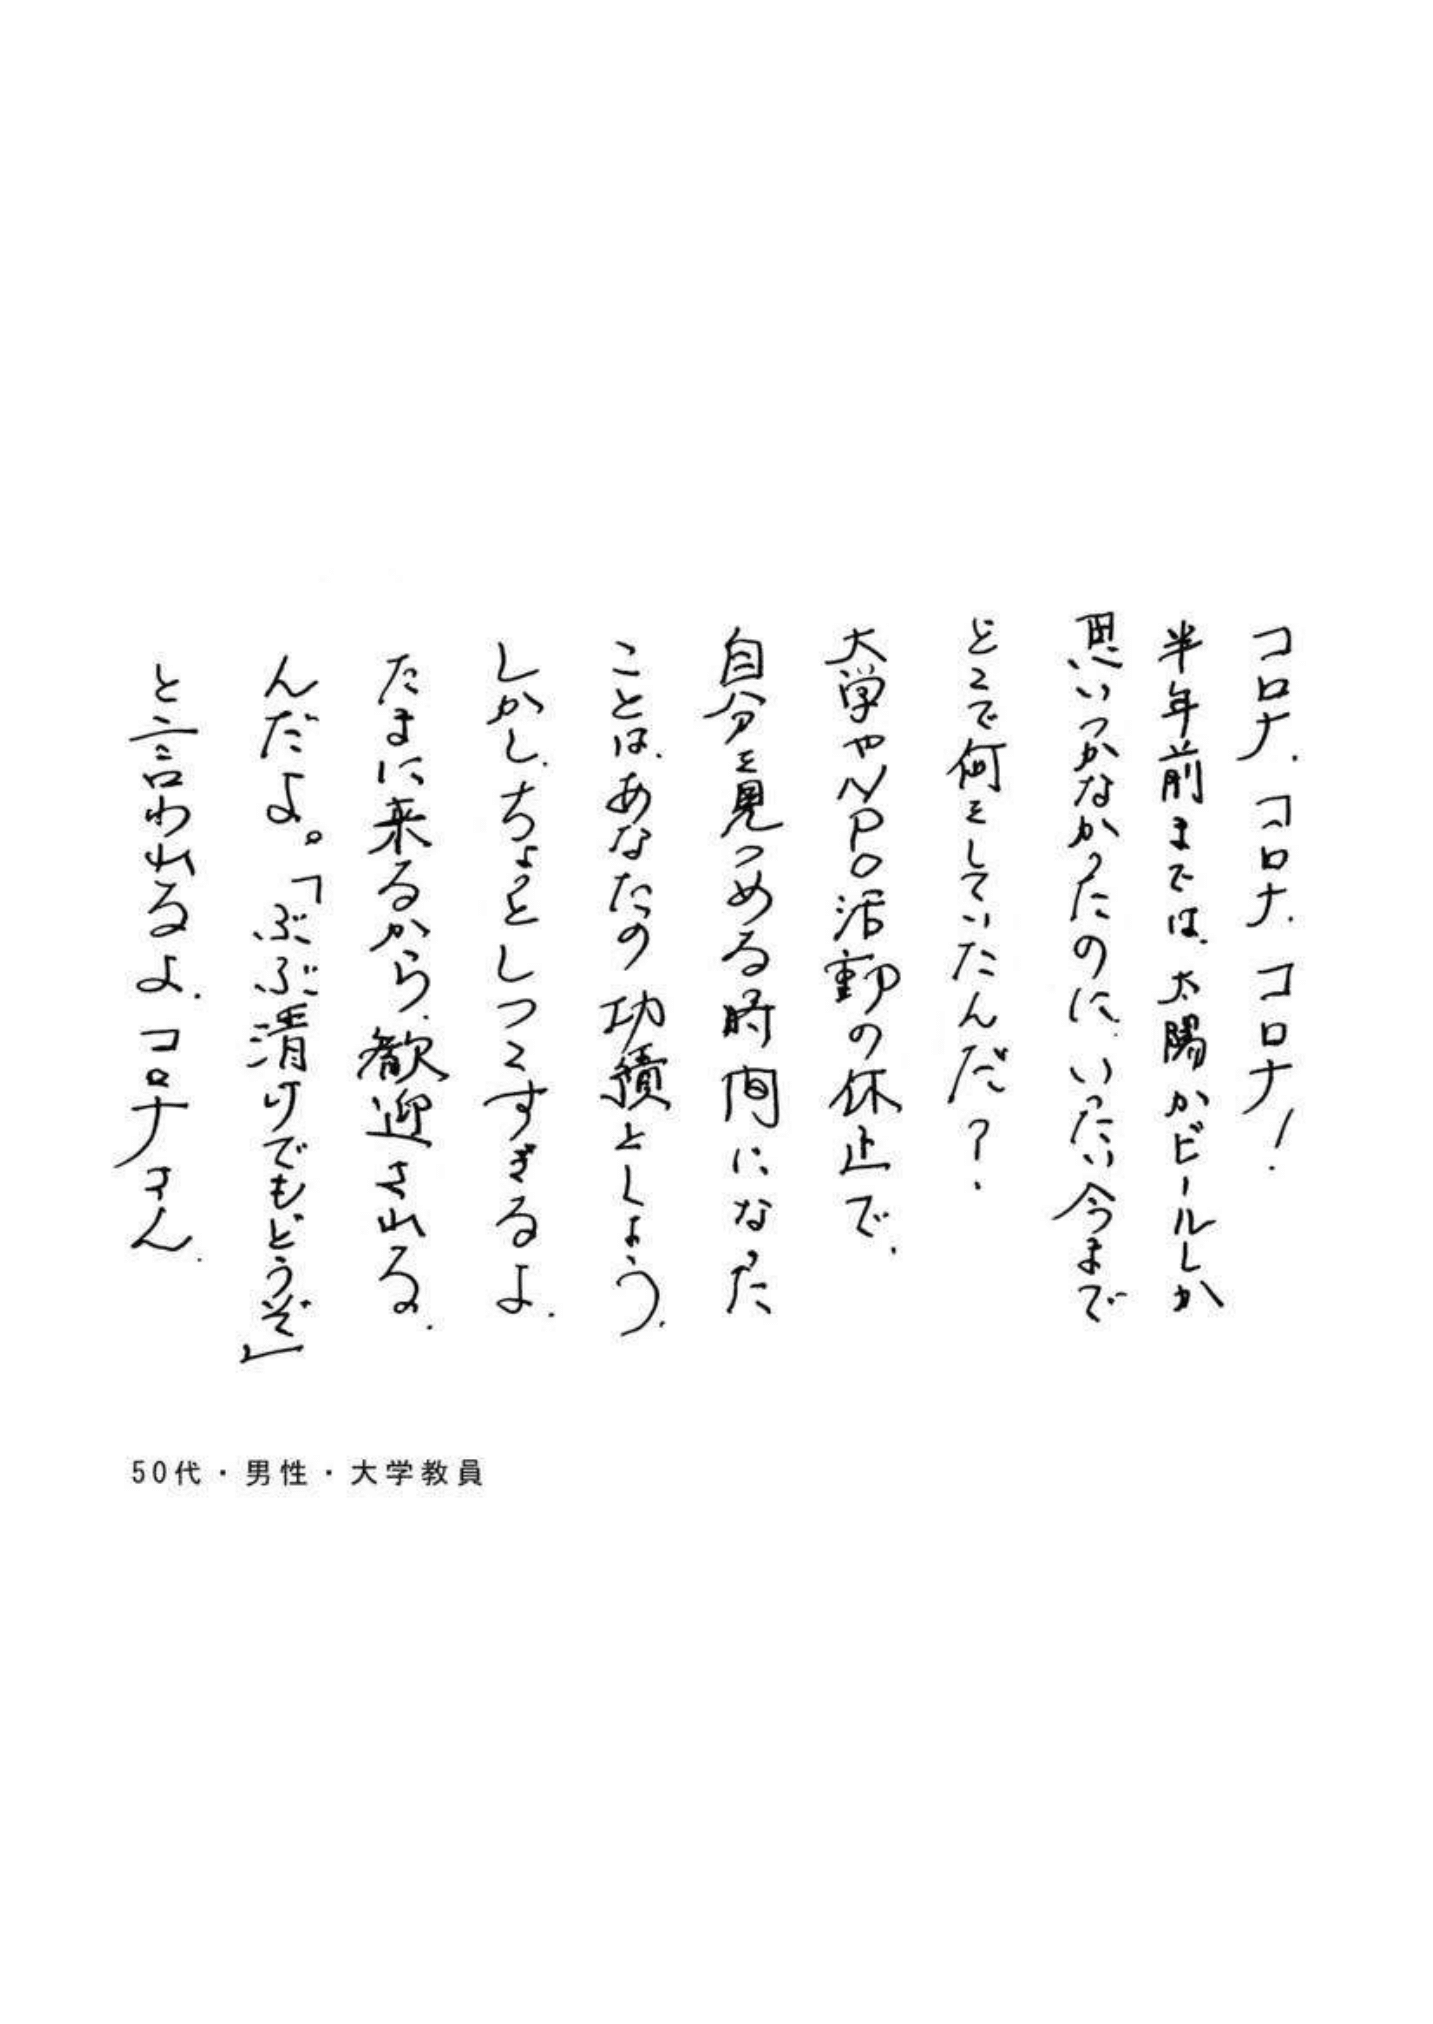 コロナ、コロナ、コロナ!
半年前までは、太陽かビールしか
思いつかなかったのに、いったい今まで
どこで何をしていたんだ?.
大学やNPO活動の休止で、
自分を見つめる時間になった
ことは、あなたの功績としよう。
しかし、ちょっとしつこすぎるよ.
たまに来るから、歓迎される.
んだよ。「ぶぶ漬けでもどうぞ」
と言われるよ、コロナさん.
50代・男性・大学教員